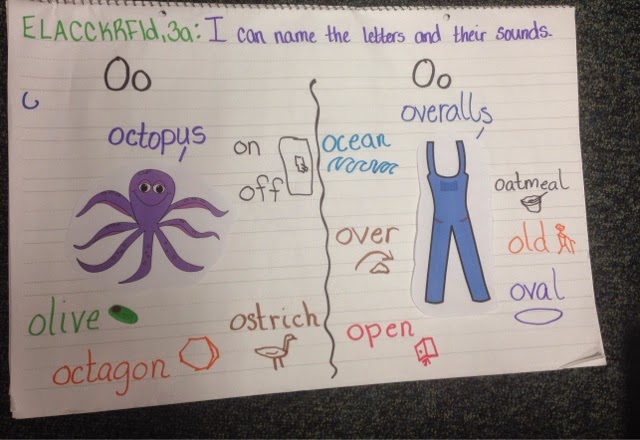 ELACCKRF1d,3a: I can name the letters and their sounds.
Oo
octopus
on
off
olive
octagon
ostrich
Oo
overalls
ocean
oatmeal
over
old
oval
open